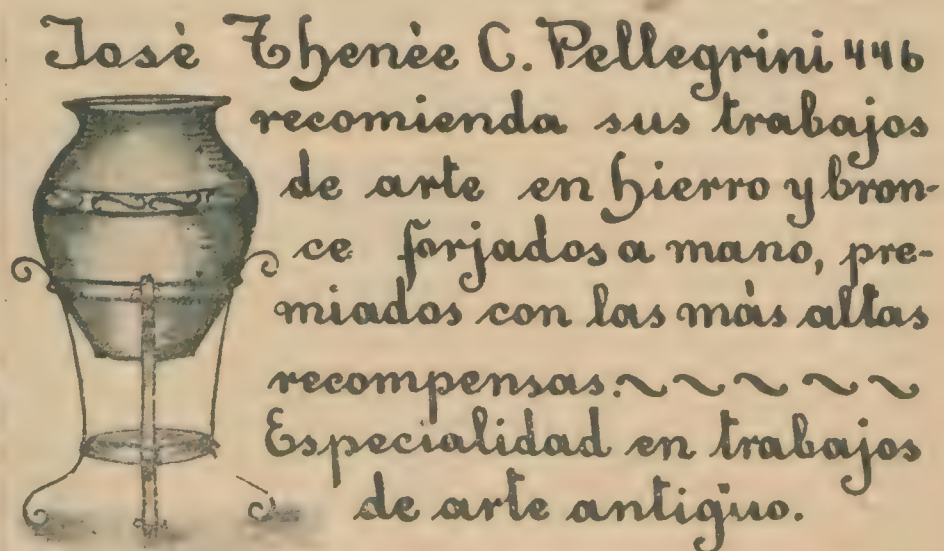 Josè Thenèe C. Pellegrini 446
recomienda sus trabajos
de arte en hierro y bron-
ce forjados a mano, pre-
miados con las màs altas
recompensas. ~ ~ ~ ~ ~
Especialidad en trabajos
de arte antigüo.